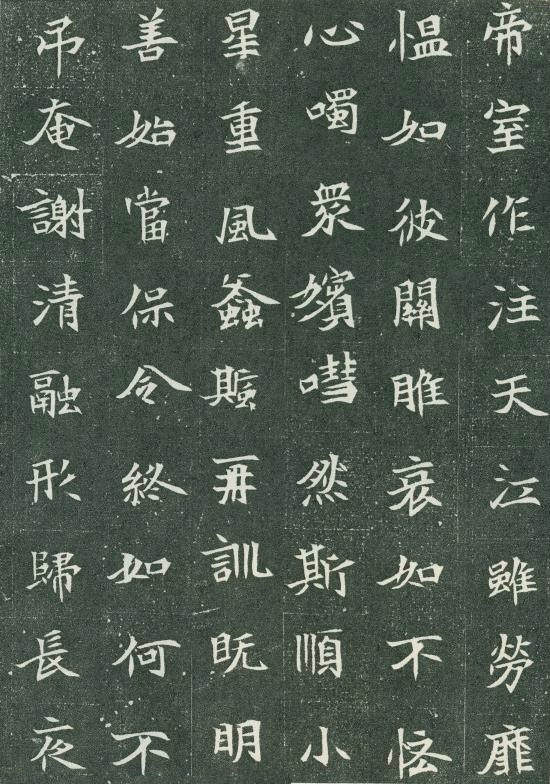 帝室作注天江雖勞靡
愠如彼關雎哀如不
心囑衆嬪嘒然斯順小
星重風螽蟴再訓既明
善始當保令終如何不
弔奄謝清融形歸長夜